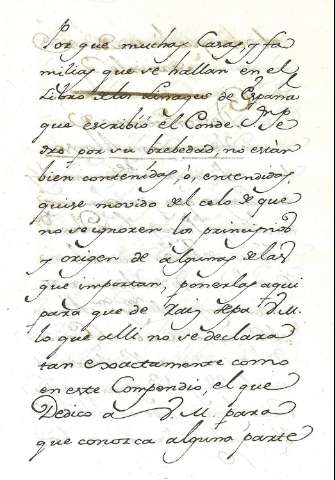 Por que muchas Casas, y fa
milias que se hallan en el
Libro delos Linages de España
que escribió el Conde Dn Pe
dro por su brebedad, no están
bien contenidas, ó, entendidas,
quise movido del celo de que
no se ignoren los principios
y origen de algunas delas
que importan, ponerlas aqui
para que de raiz sepa V.M.
lo que alli no se declara
tan exactamente como
en este Compendio, el que
Dedico a V.M. para
que conosca alguna parte